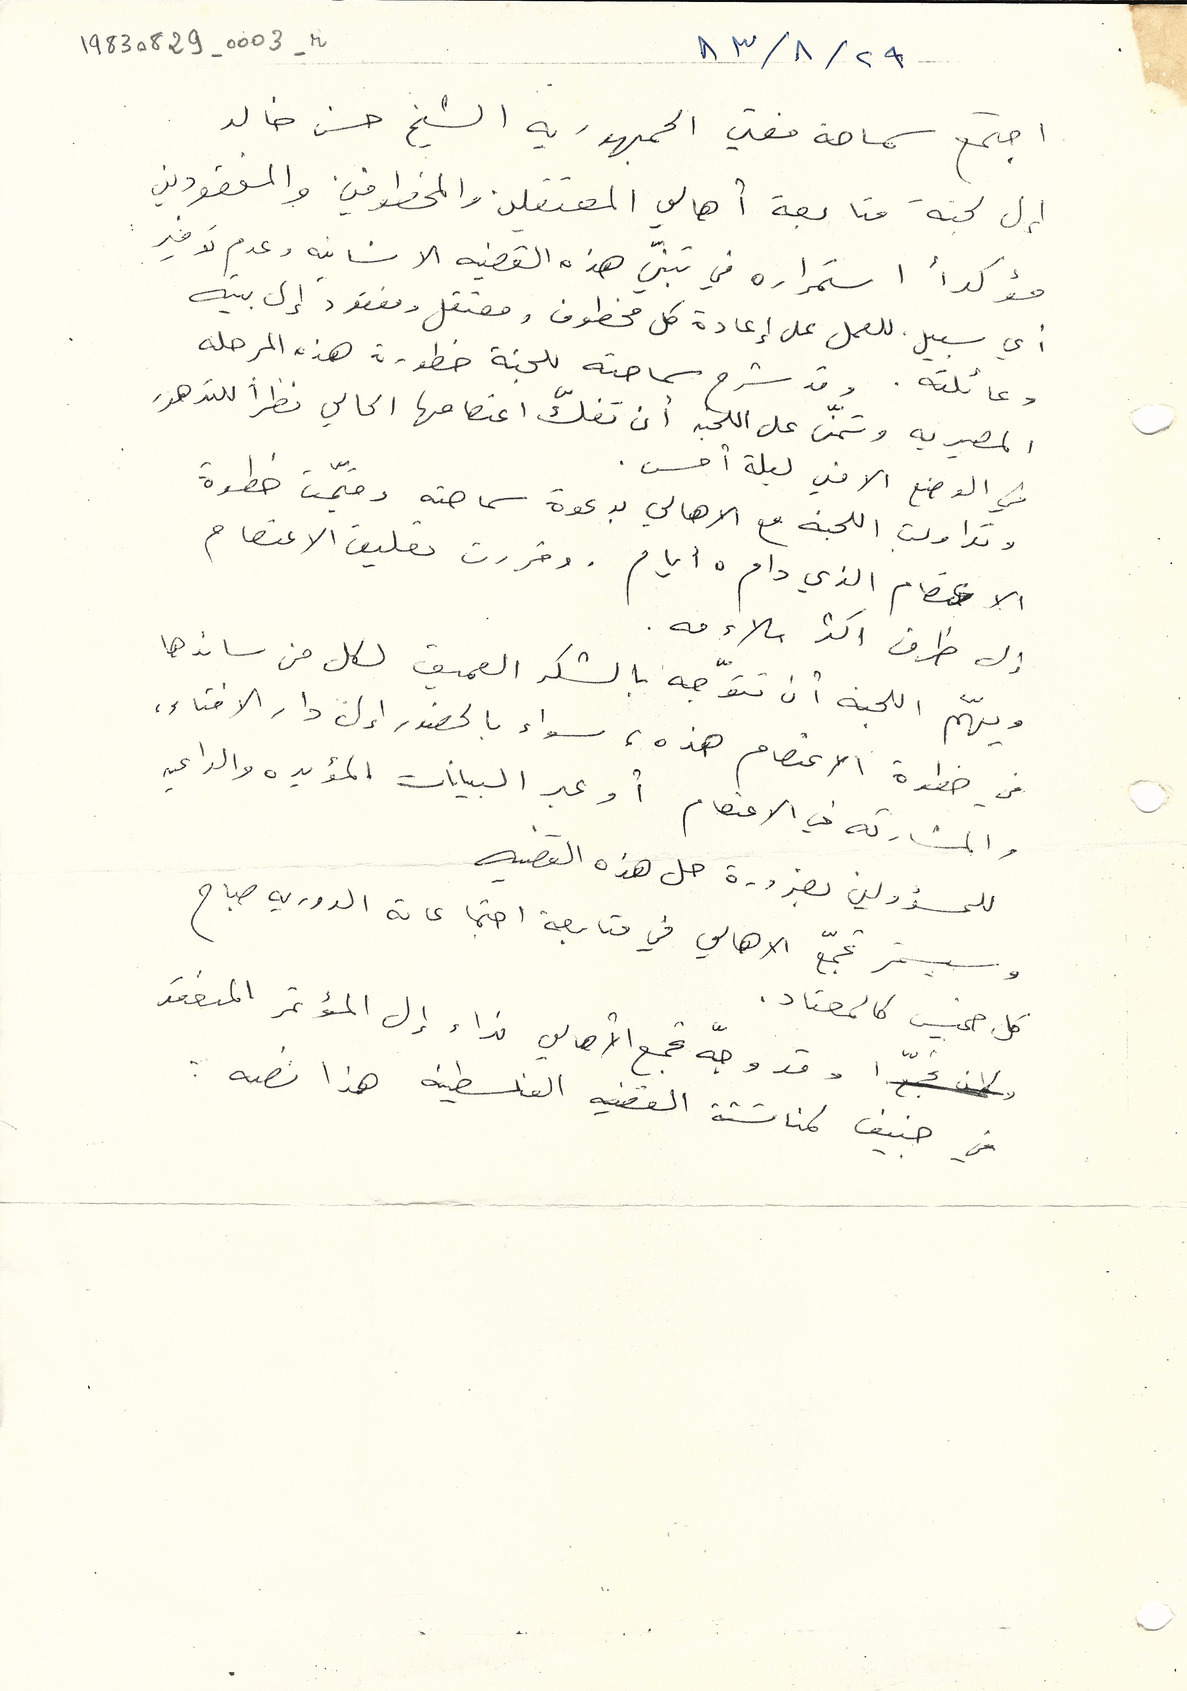 19830829_0003_r
٨٣/٨/٢٩
اجتمع سماحة مفتي الجمهورية الشيخ حسن خالد
إلى لجنة متابعة أهالي المعتقلين والمخطوفين والمفقودين
مؤكداً استمراره في تبنّي هذه القضيه الانسانيه وعدم توفير
أي سبيل للعمل على إعادة كل مخطوف ومعتقل ومفقود إلى بيته
وعائلته. وقد شرح سماحته للجنة خطورة هذه المرحله
المصيريه وتمنّى على اللجنه أن تفكّ اعتصامها الحالي نظراً للتدهور
في الوضع الامني ليلة أمس.
وتداولت اللجنه مع الاهالي بدعوة سماحته وقيّمت خطوة
الاعتصام الذي دام ٥ أيام. وقررت تعليق الاعتصام
إلى ظرف اكثر ملاءمه.
ويهمّ اللجنه أن تتوّجه بالشكر العميق لكل من ساندها
في خطوة الاعتصام هذه، سواء بالحضور إلى دار الافتاء،
والمشاركه في الاعتصام أو عبر البيانات المؤيده والداعيه
للمسؤولين بضرورة حل هذه القضيه
وسيستمر تجمّع الاهالي في متابعة اجتماعاته الدوريه صباح
كل خميس كالمعتاد.
وقد وجّه تجمع الأهالي نداء إلى المؤتمر المنعقد
في جنيف لمناقشة القضيه الفلسطينيه هذا نصه :